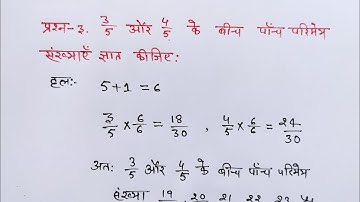 प्रश्न-3. 3/5 और 4/5 के बीच पाँच परिमेय
संख्याएँ ज्ञात कीजिए:
हल: 5+1 = 6
3/5 × 6/6 = 18/30 , 4/5 × 6/6 = 24/30
अतः 3/5 और 4/5 के बीच पाँच परिमेय
संख्या 19 20 21 22 23